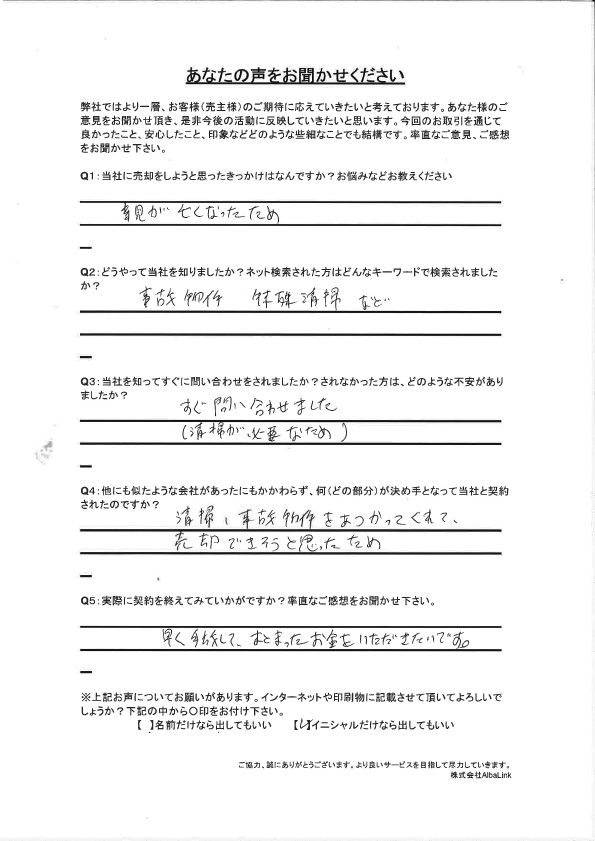 あなたの声をお聞かせください
弊社ではより一層、お客様(売主様)のご期待に応えていきたいと考えております。あなた様のご
意見をお聞かせ頂き、是非今後の活動に反映していきたいと思います。今回のお取引を通じて
良かったこと、安心したこと、印象などどのような些細なことでも結構です。率直なご意見、ご感想
をお聞かせ下さい。
Q1:当社に売却をしようと思ったきっかけはなんですか?お悩みなどお教えください
親が亡くなったため
Q2:どうやって当社を知りましたか?ネット検索された方はどんなキーワードで検索されました
か?
事故物件 特殊清掃 など
Q3:当社を知ってすぐに問い合わせをされましたか?されなかった方は、どのような不安があり
ましたか?
すぐ問い合わせました
(清掃が必要なため)
Q4:他にも似たような会社があったにもかかわらず、何(どの部分)が決め手となって当社と契約
されたのですか?
清掃、事故物件をあつかってくれて、
売却できそうと思ったため
Q5:実際に契約を終えてみていかがですか?率直なご感想をお聞かせ下さい。
早く手放して、まとまったお金をいただきたいです。
※上記お声についてお願いがあります。インターネットや印刷物に記載させて頂いてよろしいで
しょうか?下記の中から○印をお付け下さい。
【 】名前だけなら出してもいい 【 】イニシャルだけなら出してもいい
ご協力、誠にありがとうございます。より良いサービスを目指して尽力していきます。
株式会社AlbaLink